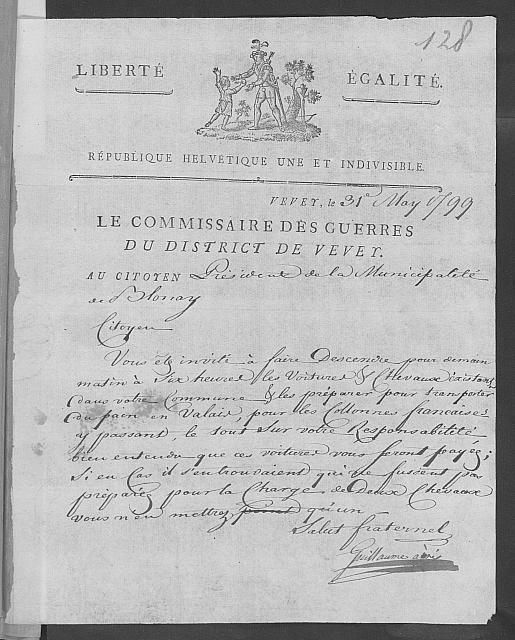 128
LIBERTÉ ÉGALITÉ.
RÉPUBLIQUE HELVÉTIQUE UNE ET INDIVISIBLE.
VEVEY, le 31e May 1799
LE COMMISSAIRE DES GUERRES
DU DISTRICT DE VEVEY.
AU CITOYEN Président de la Municipalité
de Blonay
Citoyen
Vous ete invité à faire Descendre pour demain
matin à Six heures, les Voitures & Chevaux Existant
dans votre Commune & les préparer pour transporter
du pain en Valais, pour les Collonnes françaises
y passant, le tout Sur votre Responsabilité
bien entendu que ces voitures vous seront payés;
Si en Cas il s'en trouvaient qui ne fussent pas
préparés pour la Charge de Deux Chevaux
vous n'en mettrez point qu'un
Salut fraternel
Guillaume